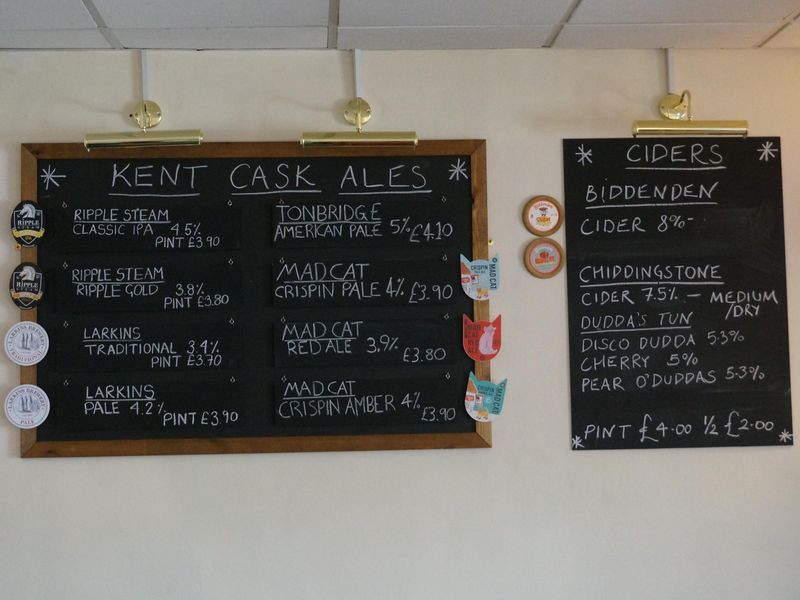 KENT CASK ALES
RIPPLE STEAM
CLASSIC IPA 4.5%
PINT £3.90
RIPPLE STEAM
RIPPLE GOLD 3.8%
PINT £3.80
LARKINS
TRADITIONAL 3.4%
PINT £3.70
LARKINS
PALE 4.2%
PINT £3.90
TONBRIDGE
AMERICAN PALE 5% £4.10
MAD CAT
CRISPIN PALE 4% £3.90
MAD CAT
RED ALE 3.9% £3.80
MAD CAT
CRISPIN AMBER 4%
£3.90
RIPPLE
RIPPLE
LARKINS BREWERY
TRADITIONAL
LARKINS BREWERY
PALE
CRISPIN
MAD CAT
MAD CAT
RED ALE
CRISPIN
MAD CAT
CIDERS
BIDDENDEN
CIDER 8%
CHIDDINGSTONE
CIDER 7.5% — MEDIUM
/DRY
DUDDA'S TUN
DISCO DUDDA 5.3%
CHERRY 5%
PEAR O'DUDDAS 5.3%
PINT £4.00 ½ £2.00